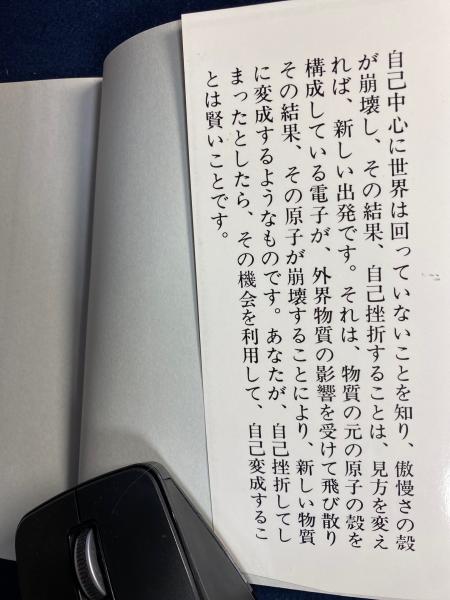 自己中心に世界は回っていないことを知り、傲慢さの殻
が崩壊し、その結果、自己挫折することは、見方を変え
れば、新しい出発です。それは、物質の元の原子の殻を
構成している電子が、外界物質の影響を受けて飛び散り
その結果、その原子が崩壊することにより、新しい物質
に変成するようなものです。あなたが、自己挫折してし
まったとしたら、その機会を利用して、自己変成するこ
とは賢いことです。